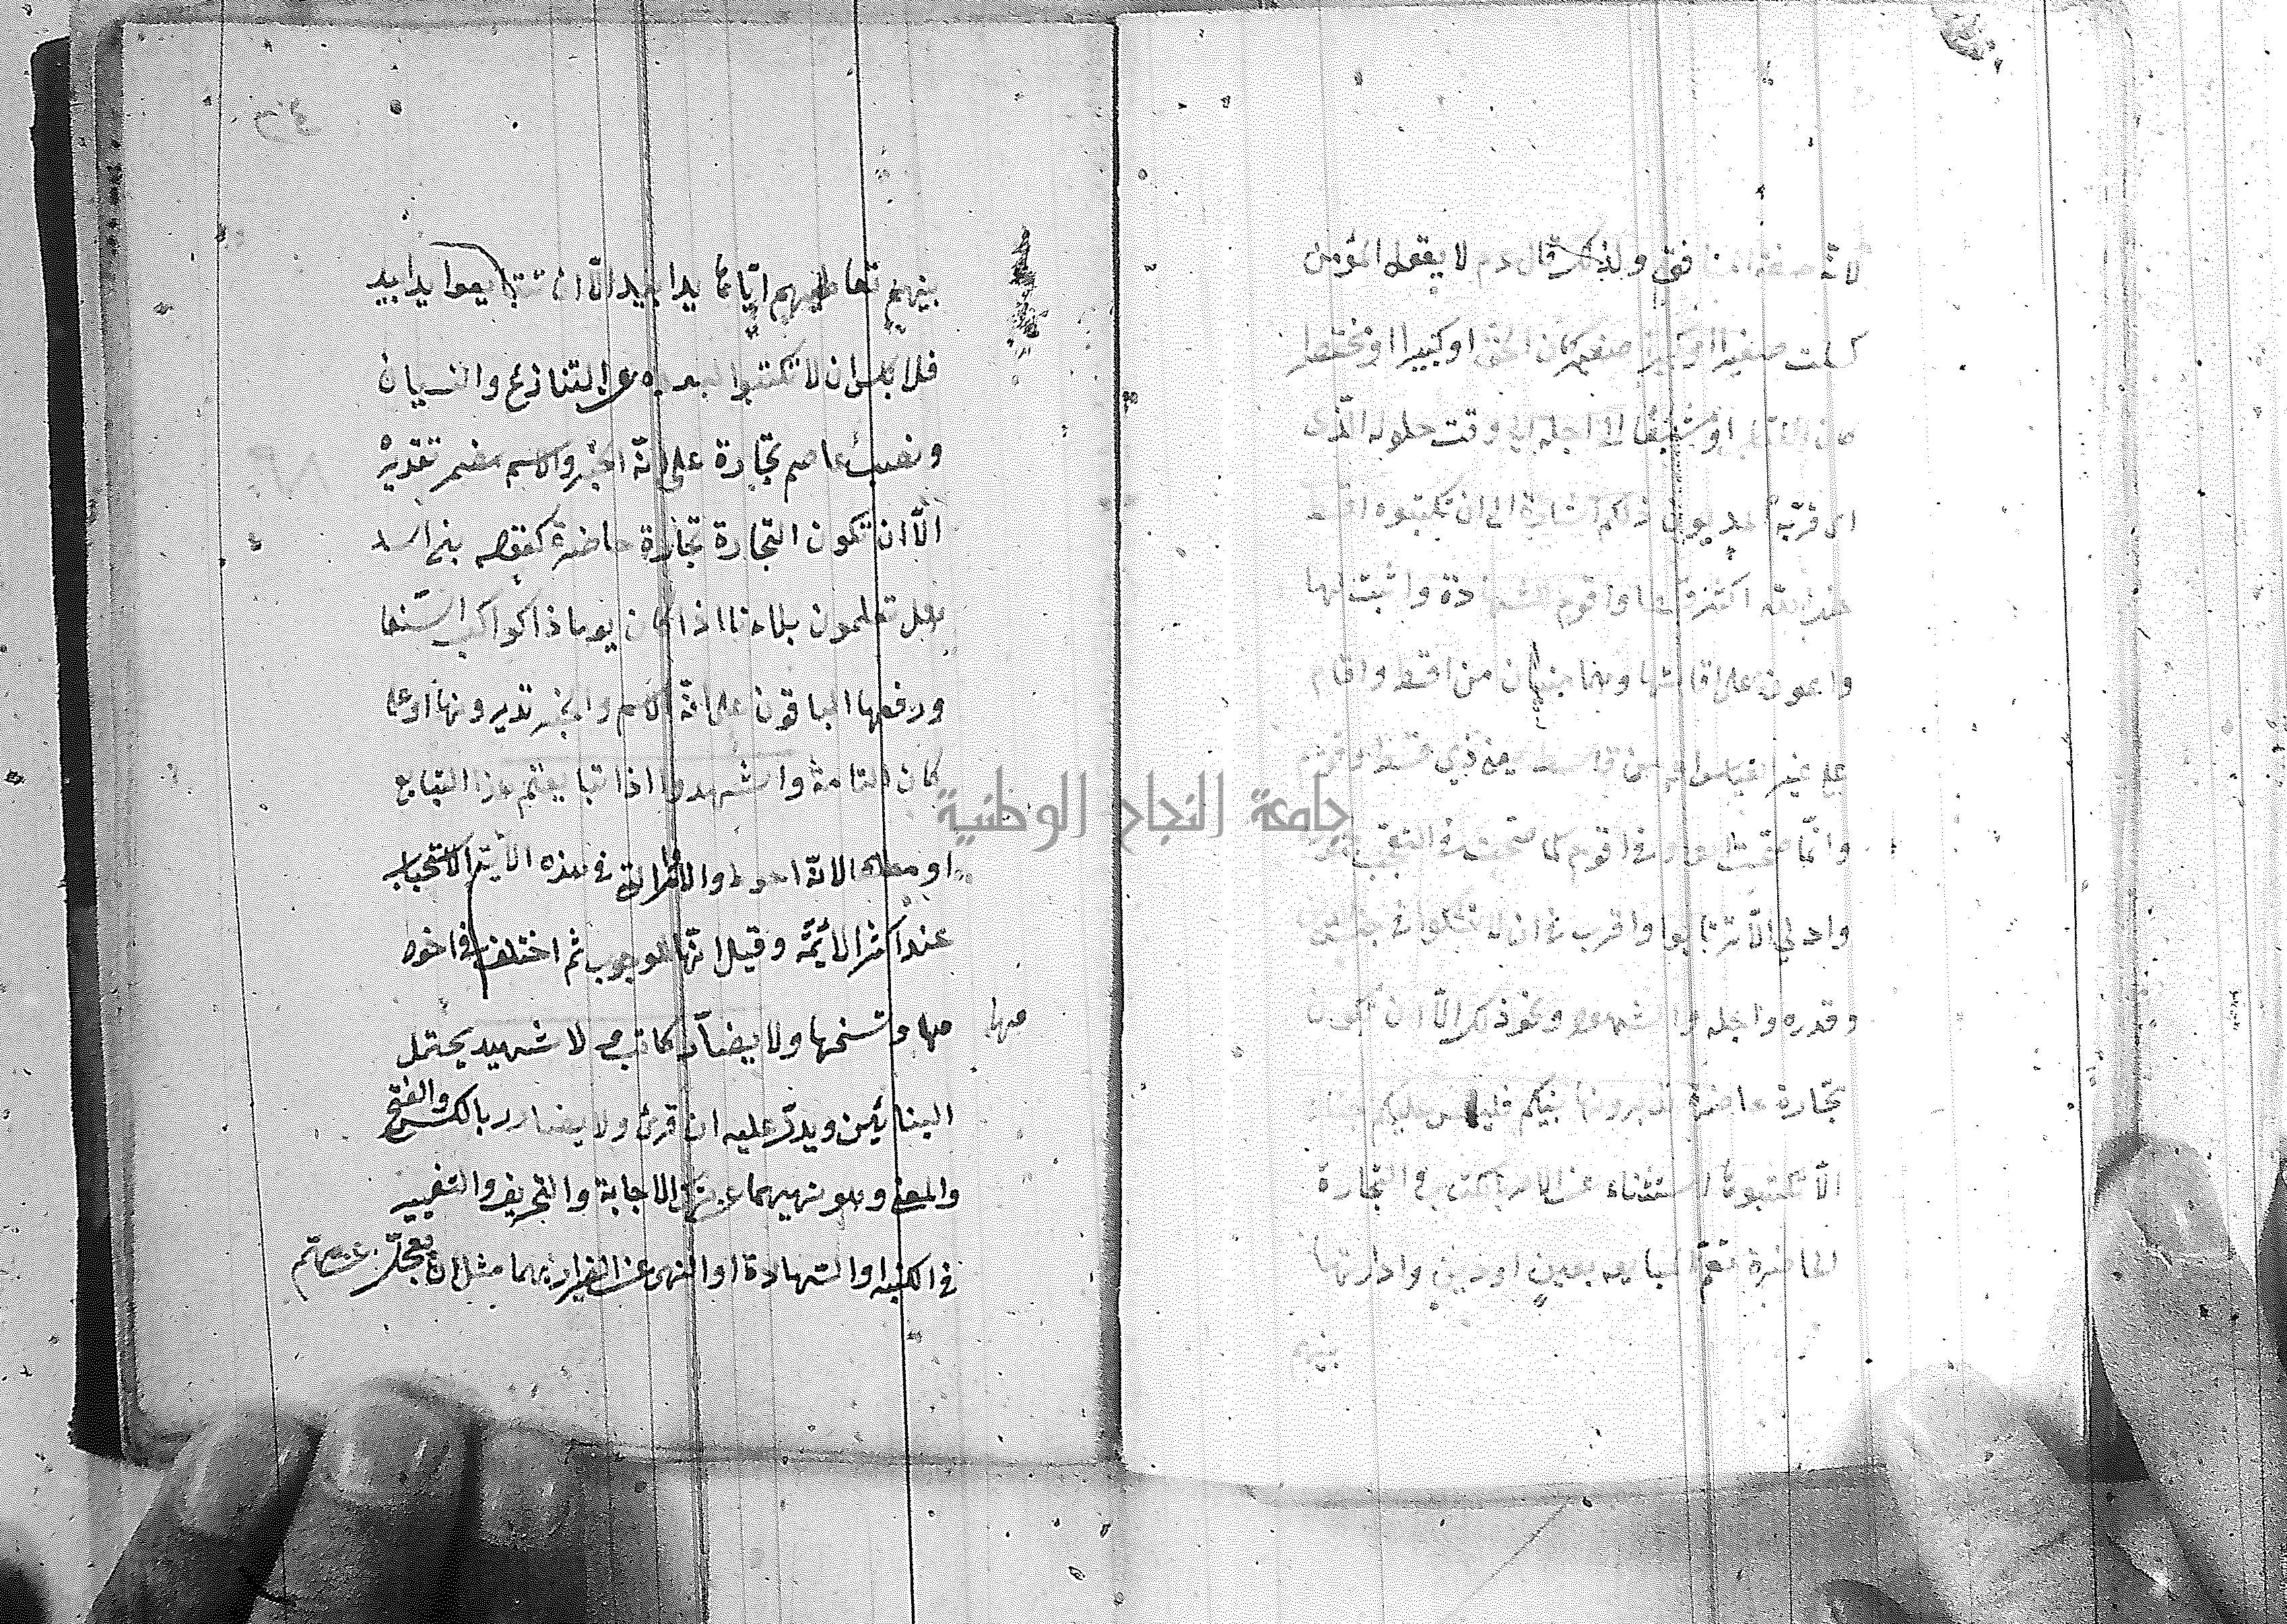 لانه صفة المنافق ولذلك قال عم لا يقول المؤمن
كسلت صغيرا او كبيرا صغيرا كان الحق او كبيرا او مختصرا
كان الكتاب او مشبعا الى اجله الى وقت حلوله الذى
اقربه المديون ذلكم اشارة الى ان تكتبوه اقسط
عند الله اكثر قسطا واقوم للشهادة واثبت لها
واعون على اقامتها وهما مبنيان من اقسط واقام
على غير قياس او من قاسط بمعنى ذي قسط وقويم
وانما صحت الواو في اقوم كما صحت في التعجب
وادنى الا ترتابوا واقرب في ان لا تشكوا في جنس
وقدره واجله والشهود ونحو ذلك الا ان تكون
تجارة حاضرة تديرونها بينكم فليس عليكم جناح
الا تكتبوها استثناء عن الامر بالكتابة والتجارة
الحاضرة تعم المبايعة بعين او دين وادارتها
بينهم
بينهم تعاطيهم اياها يدا بيد الا ان تتبايعوا يدا بيد
فلا بأس ان لا تكتبوا لبعده عن التنازع والنسيان
ونصب عاصم تجارة على انه الخبر والاسم مضمر تقديره
الا ان تكون التجارة تجارة حاضرة كقوله بنى اسد
هل تعلمون بلاءنا اذا كان يوما ذا كواكب اشنعا
ورفعها الباقون على انه الاسم والخبر تديرونها او على
كان التامة واشهدوا اذا تبايعتم هذا التبايع
او مطلقا لانه احوط والاوامر التي في هذه الآية للاستحباب
عند اكثر الائمة وقيل انها للوجوب ثم اختلف في احكا
مها ونسخها ولا يضار كاتب ولا شهيد يحتمل
منها
البنائين ويدل عليه ان قرئ ولا يضارر بالكسر والفتح
والمعنى وهو نهيهما عن ترك الاجابة والتحريف والتغيير
في الكتبة والشهادة او النهي عن الضرار بهما مثل ان يعجلا عن مهم
جامعة النجاح الوطنية